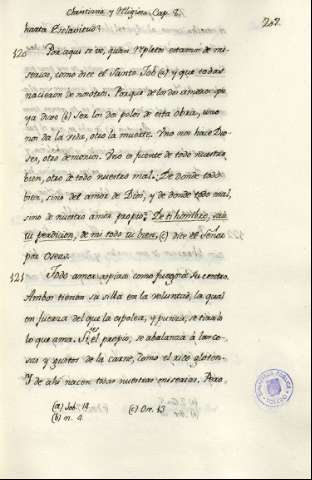 Christiana y Religiosa Cap. 8.
207
hasta Esclavitud?
120 Por aqui se vè, quan repleto estamos de mi-
serias, como dice el Santo Job (a) y que todas
nacieron de nosotros. Porque de los dos amores que
ya dixe (b) ser los dos polos de esta obra, uno
nos da la vida, otro la muerte. Uno nos hace Dio-
ses, otro demonios. Uno es fuente de todo nuestro
bien, otro de todo nuestro mal. De donde todo
bien, sino del amor de Dios, y de donde todo mal,
sino de nuestro amor propio? De ti hombre, sale
tu perdicion, de mi todo tu bien, (c) dice el Señor
por Oseas.
121 Todo amor aspira como fuego à su centro.
Ambos tienen su silla en la voluntad, la qual
en fuerza del que la espolea, y punza, se tira à
lo que ama. Si es el propio, se abalanza à las co-
sas y gustos de la carne, como el rico gloton.
Y de ahi nacen todas nuestras miserias. Pero,
(a) Job. 14 (c) Os. 13
(b) n. 4
BIBLIOTECA PUBLICA
TOLEDO